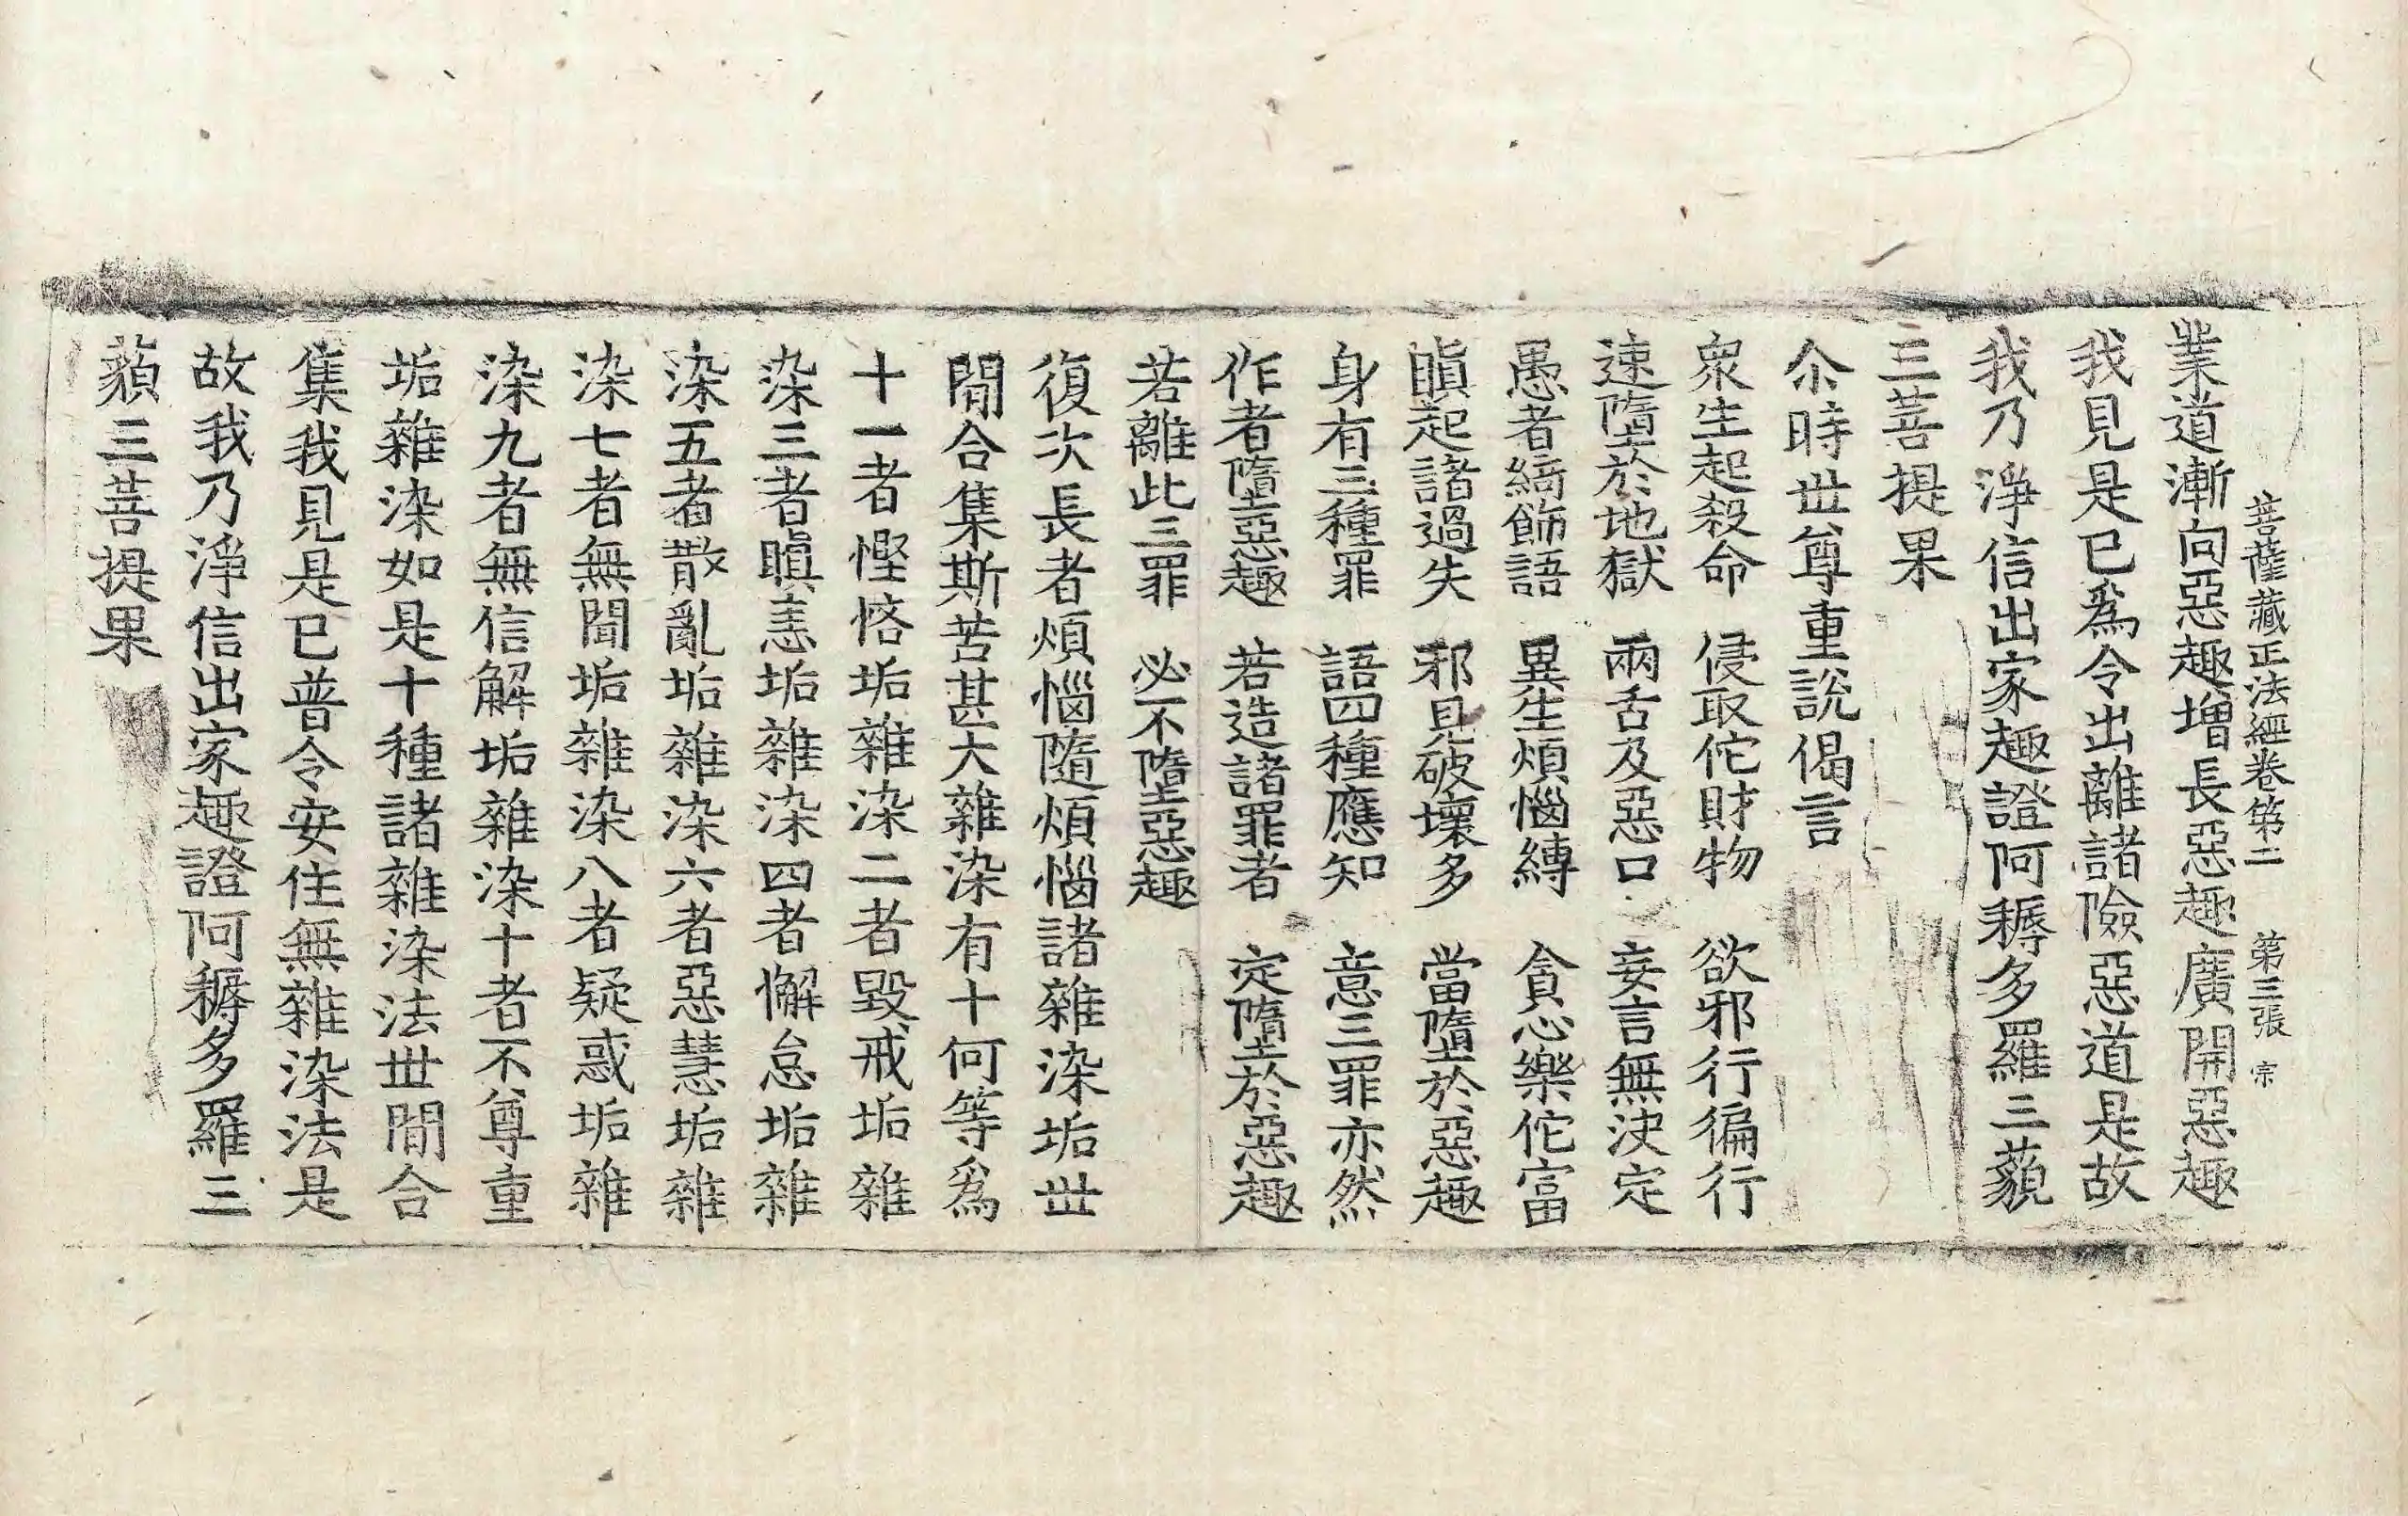 菩薩藏正法經卷第二 第三張 宗
業道漸向惡趣增長惡趣廣開惡趣
我見是已爲令出離諸險惡道是故
我乃淨信出家趣證阿耨多羅三藐
三菩提果
尒時世尊重說偈言
衆生起殺命 侵取佗財物 欲邪行徧行
速墮於地獄 兩舌及惡口 妄言無決定
愚者綺飾語 異生煩惱縛 貪心樂佗富
瞋起諸過失 邪見破壞多 當墮於惡趣
身有三種罪 語四種應知 意三罪亦然
作者墮惡趣 若造諸罪者 定墮於惡趣
若離此三罪 必不墮惡趣
復次長者煩惱隨煩惱諸雜染垢世
間合集斯苦甚大雜染有十何等爲
十一者慳悋垢雜染二者毀戒垢雜
染三者瞋恚垢雜染四者懈怠垢雜
染五者散亂垢雜染六者惡慧垢雜
染七者無聞垢雜染八者疑惑垢雜
染九者無信解垢雜染十者不尊重
垢雜染如是十種諸雜染法世間合
集我見是已普令安住無雜染法是
故我乃淨信出家趣證阿耨多羅三
藐三菩提果